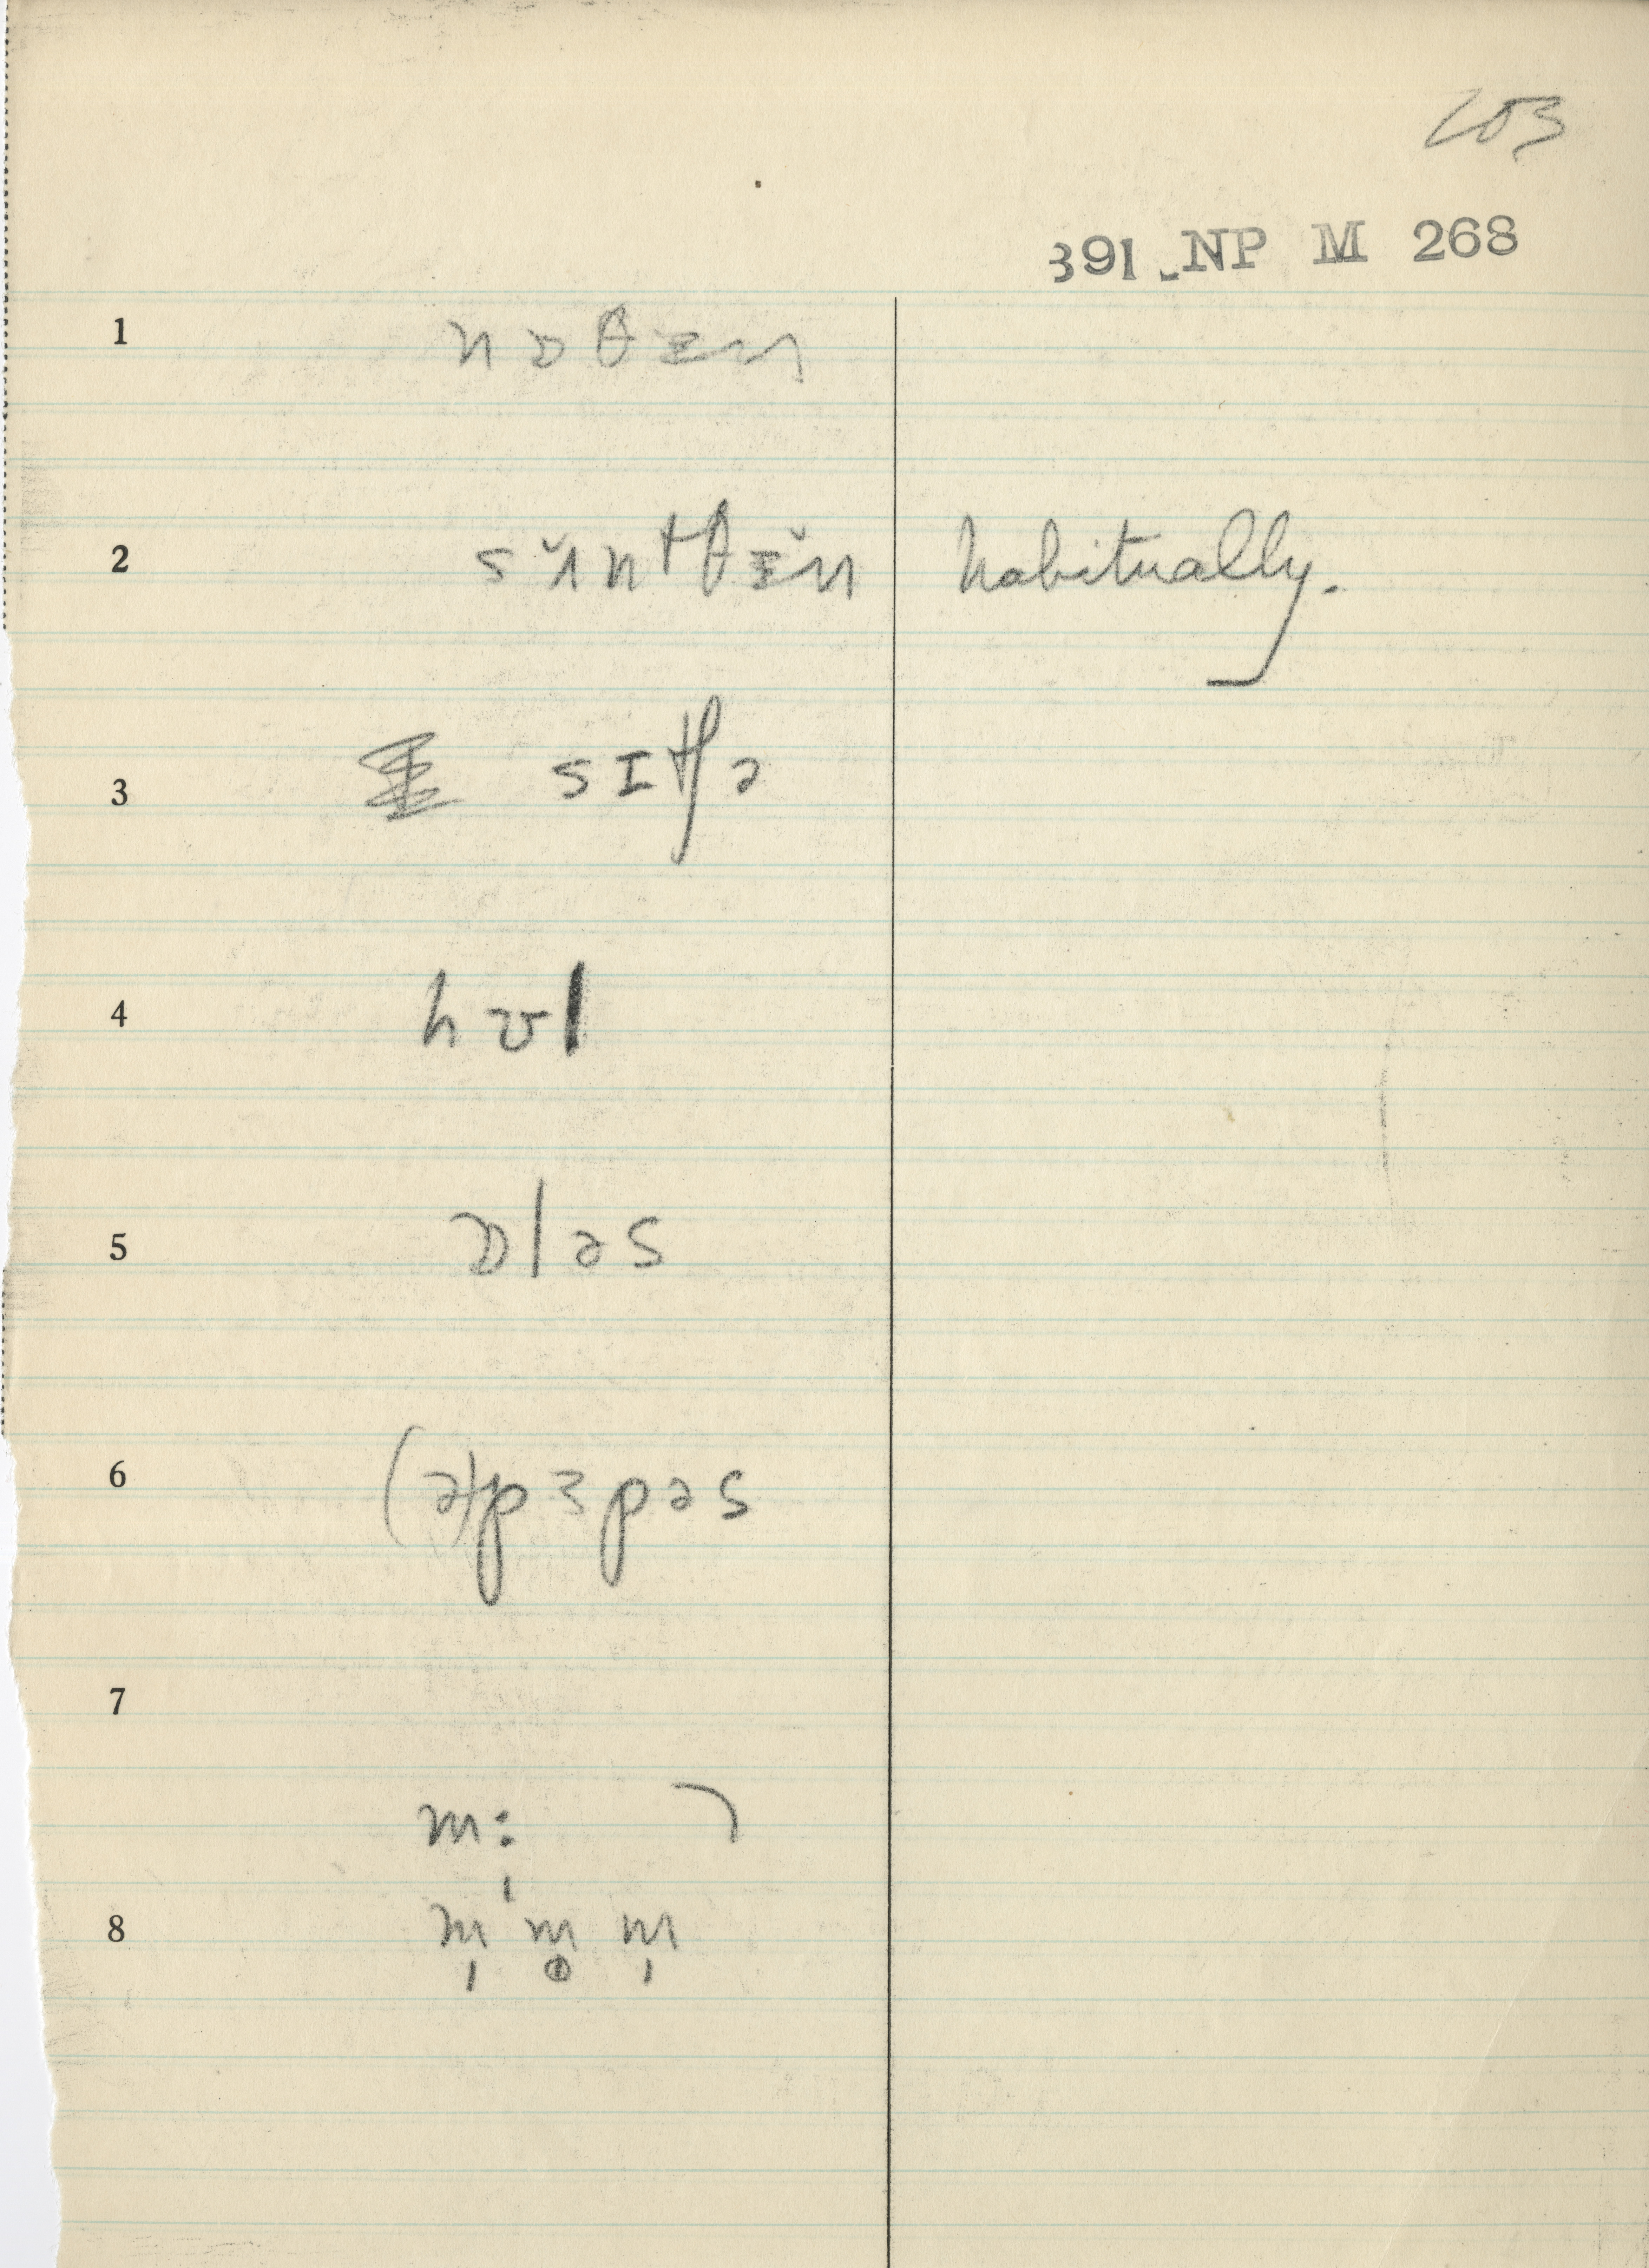 203
391 NP M 268
1 nɒθɪŋ
2 sʌ̆mtθɪ̆n habitually.
3 sɪtʃə
4 hʊl
5 ɒləs
6 (ə)pɜpəs
7
m̩:
8 m̩ m̥ m̩